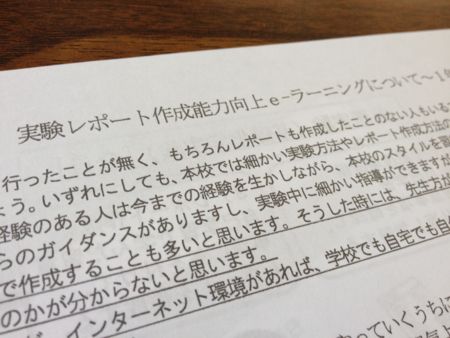 実験レポート作成能力向上ｅ-ラーニングについて～１年
行ったことが無く、もちろんレポートも作成したことのない人もいる
よう。いずれにしても、本校では細かい実験方法やレポート作成方法の
経験のある人は今までの経験を生かしながら、本校のスタイルを
らのガイダンスがありますし、実験中に細かい指導ができますが
で作成することも多いと思います。そうした時には、先生方が
のかが分からないと思います。
インターネット環境があれば、学校でも自宅でも自
っていくうちに